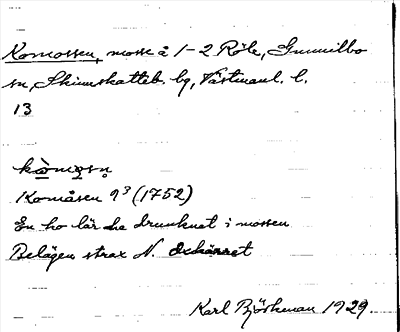 Komossen, mosse å 1-2 Röle, Gunnilbo
sn, Skinnskatteb. bg, Västmanl. l.
13
Komåsen 9³ (1752)
En ko lär ha drunknat i mossen
Belägen strax N.
Karl Björkman 1929.